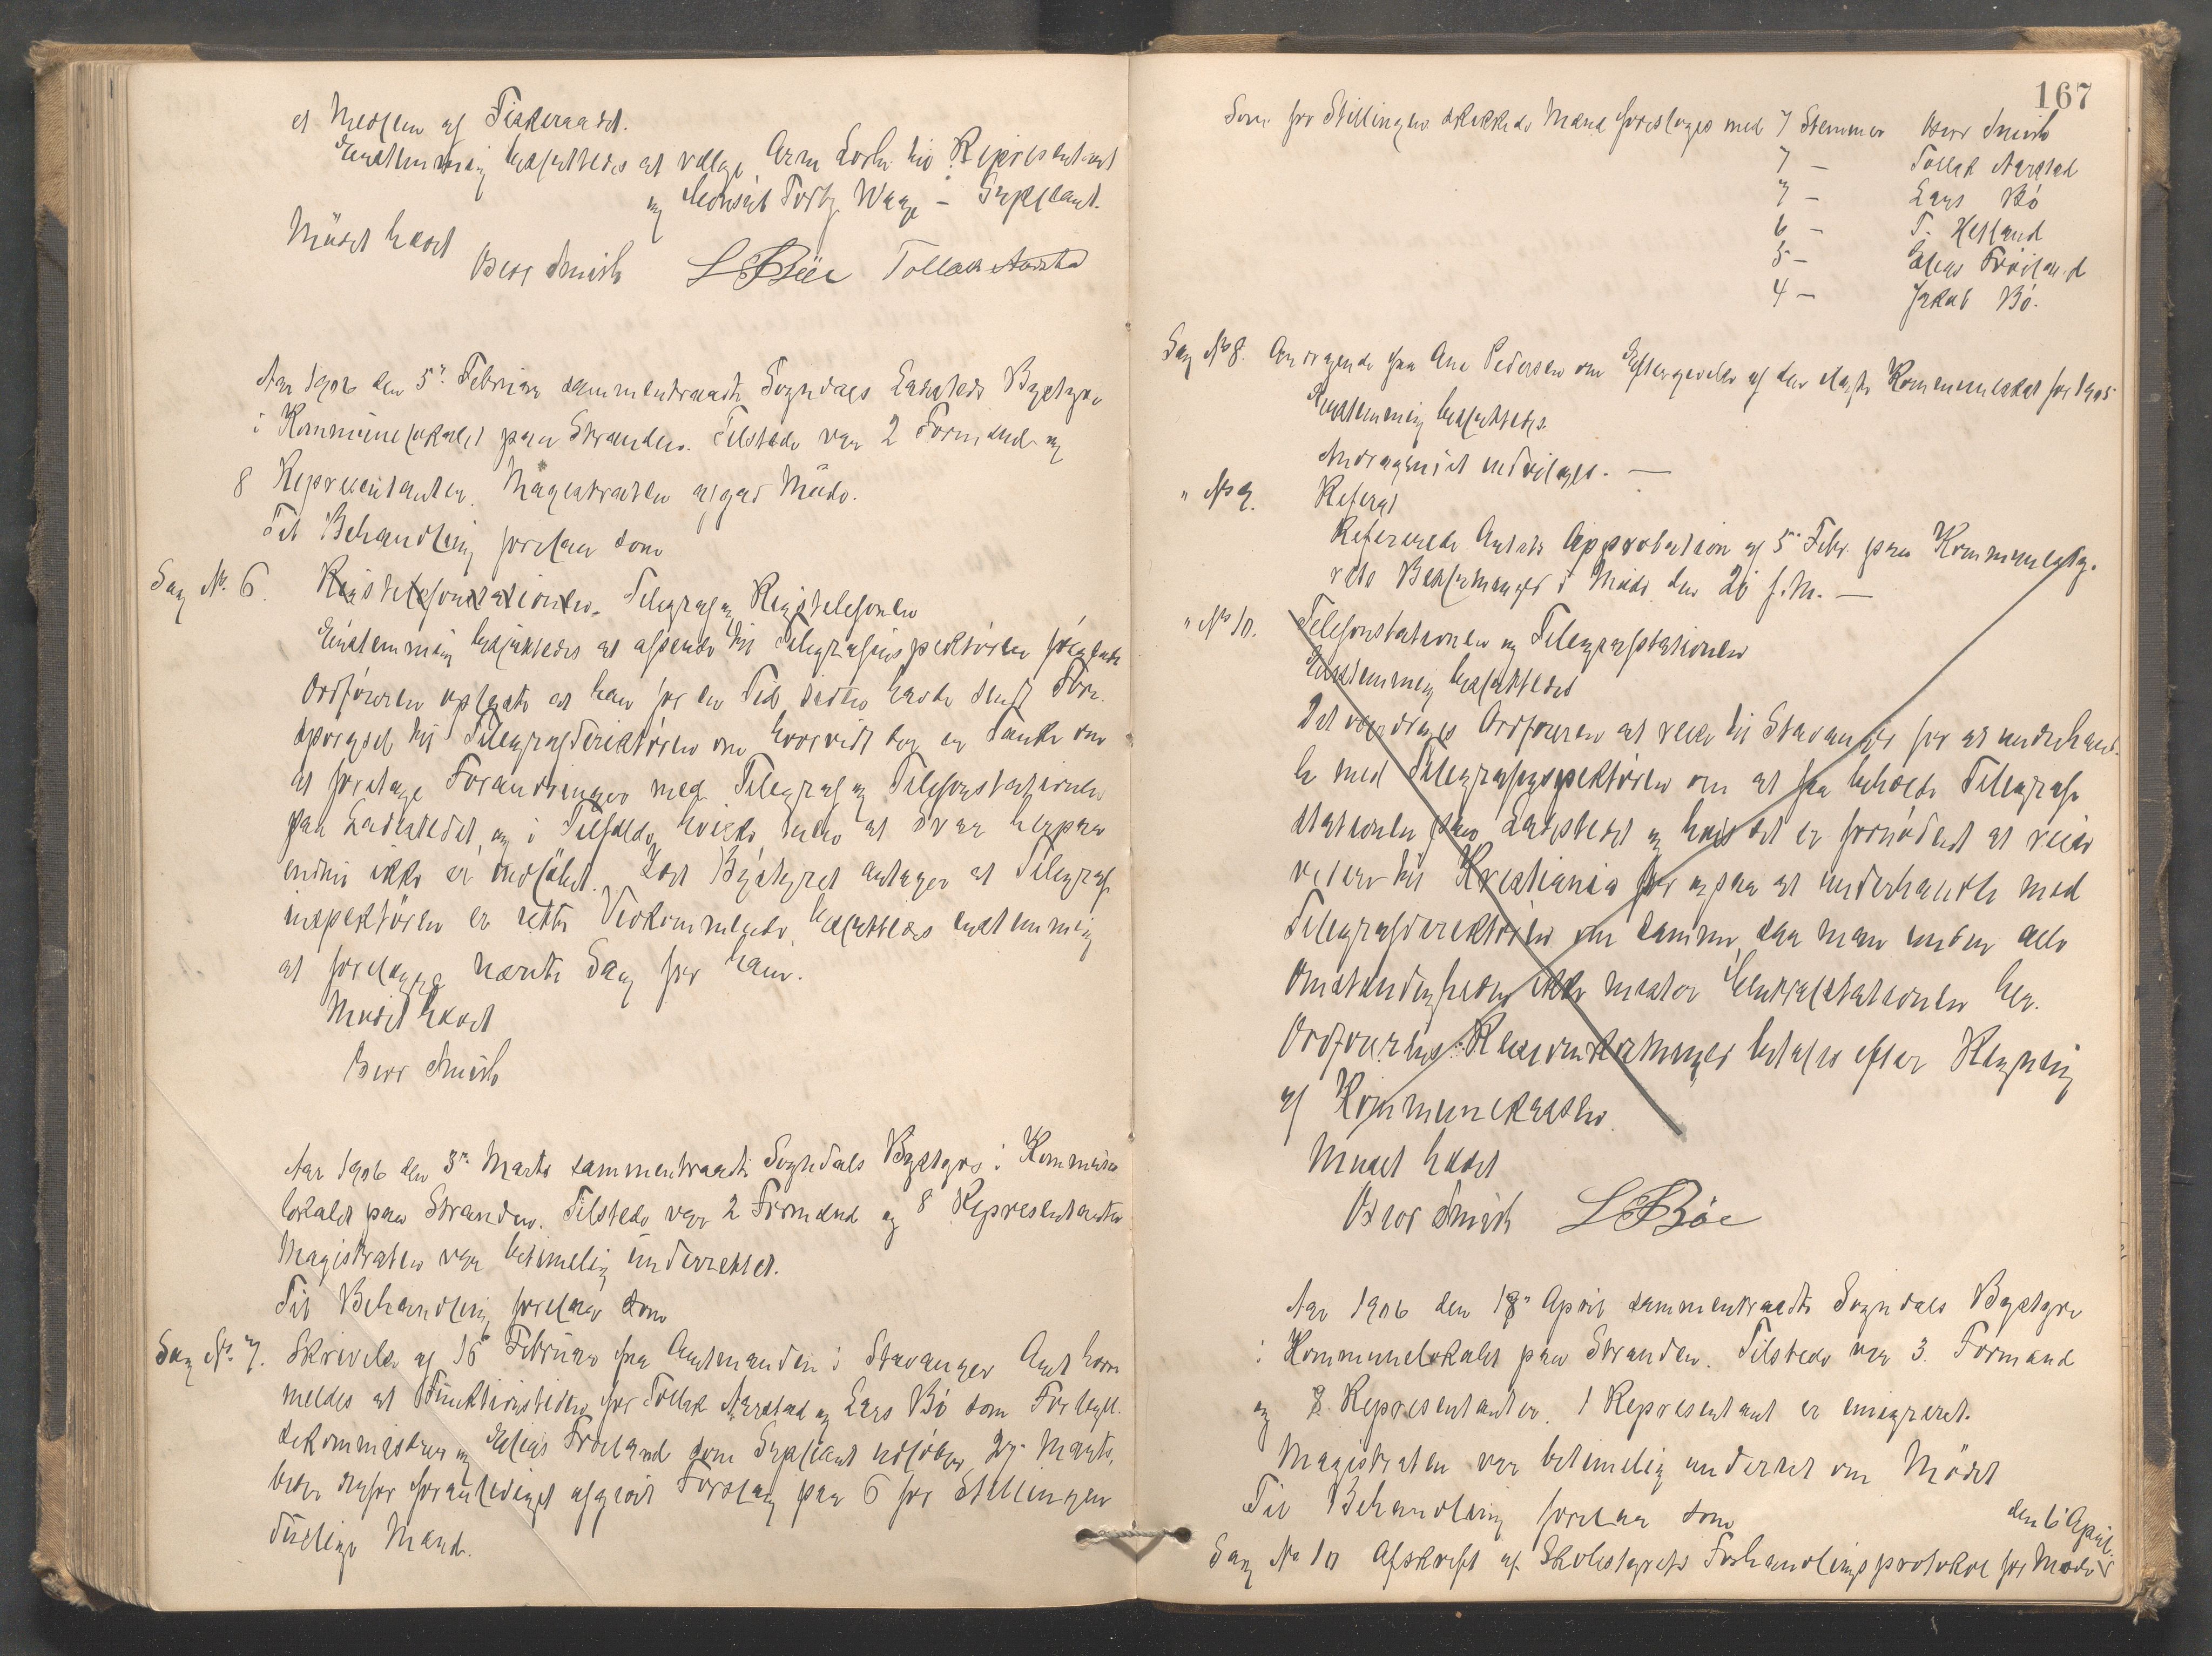 et Medlem af Fiskeraadet.
Enstemmig besluttedes at vælge Arne Losle til Representant
og Konsul Torbj. Waage - Suppleant.
Mödet hævet
Berr Smith LBöe Tollak Aarstad
Aar 1906 den 5te Februar sammentraadte Sogndals Ladesteds Bystyre
i Kommunelokalet paa Stranden. Tilstede var 2 Formænd og
8 Representanter. Magistraten afgav Möde.
Til Behandling forelaa som
Sag No. 6. Rigstelefonstationen. Telegraf og Rigstelefonen
Enstemmig besluttedes at afsende til Telegrafinspektören følgende
Ordföreren oplyste at han for en Tid siden havde sendt Fore-
spörgsel til Telegrafdirektören om hvorvidt der er Tanke om
at foretage Forandringer med Telegraf og Telefonstationen
paa Ladestedet, og i Tilfælde hvilke, uden at svar herpaa
endnu ikke er indløbet. Idet Bystyret antager at Telegraf-
inspektören er rette Vedkommende, besluttedes enstemmig
at forelægge nævnte Sag for ham.
Mödet hævet
Berr Smith
Aar 1906 den 3de Marts sammentraadte Sogndals Bystyre i Kommune
lokalet paa Stranden. Tilstede var 2 Formænd og 8 Representanter
Magistraten var betimelig underrettet.
Til Behandling forelaa som
Sag No. 7. Skrivelse af 16 Februar fra Amtmanden i Stavanger Amt hvori
meldes at Funktionstiden for Tollak Aarstad og Lars Bö som Forligelses-
kommissærer og Elias Fröiland som Suppleant udlöber Marts,
beder derfor foranlediget afgivet Forslag paa 6 for Stillingen
duelige Mænd.
167
Som for Stillingen skikkede Mænd foresloges med 7 Stemmer Berr Smith
7 - Tollak Aarstad
7 - Lars Bö
6 - T. Hetland
5 - Elias Fröiland
4 - Jakob Bö.
Sag No 8. Andragende fra Ane Pedersen om Eftergivelse af den Kommuneskat for 1905
Enstemmig besluttedes.
Andragendet indvilges. —
" No 9. Referat
Refererede Amtets Approbation af 5te Febr. paa Kommunesty-
rets Beslutninger i Möde den 26 f.M. —
" No 10. Telefonstationen og Telegrafstationen
Enstemmig besluttedes
Det overdrages Ordföreren at reise til Stavanger for at underhand-
le med Telegrafinspektören om at faa beholde Telegraf-
stationen paa Ladestedet og hvis det er fornödent at reise
videre til Kristiania for ogsaa at underhandle med
Telegrafdirektören om samme, saa man under alle
Omstændigheder ikke mister Centralstationen her.
Ordförerens Reiseomkostninger betales efter Regning
af Kommunekassen.
Mödet hævet
Berr Smith LBöe
Aar 1906 den 18de April sammentraadte Sogndals Bystyre
i Kommunelokalet paa Stranden. Tilstede var 3. Formænd
og 8 Representanter. 1 Representant er emigreret.
Magistraten var betimelig underret om Mödet
Til Behandling forelaa som
den 6 April.
Sag No 10 Afskrift af Skolestyrets Forhandlingsprotokol for Möde